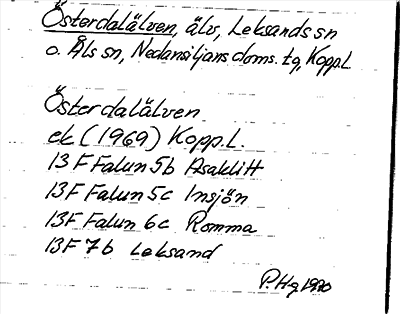 Österdalälven, älv, Leksands sn
o. Åls sn, Nedansiljans doms. tg, Kopp.l.
Österdalälven
ek (1969) Kopp.l.
13 F Falun 5b Asaklitt
13 F Falun 5c Insjön
13F Falun 6c Romma
13F 7b Leksand
P.Hg 1970